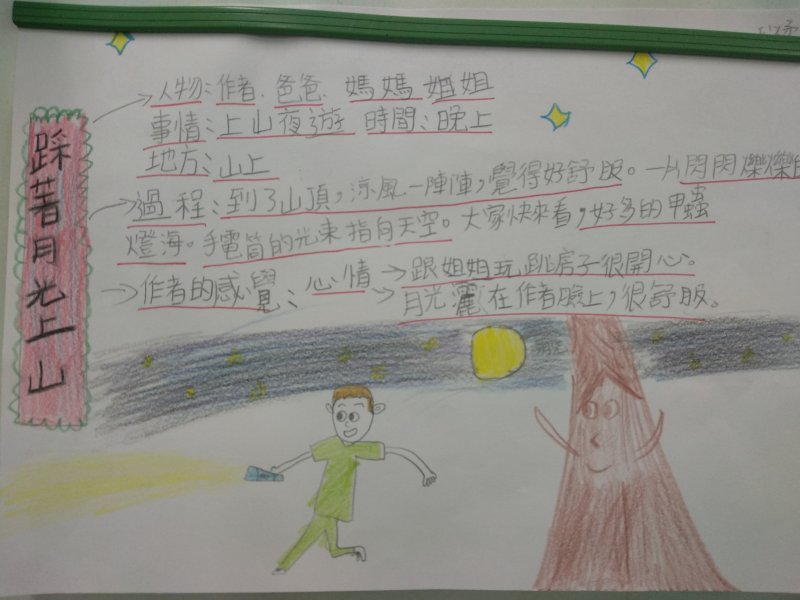 踩著月光上山
人物:作者、爸爸、媽媽、姐姐
事情:上山夜遊 時間:晚上
地方:山上
過程:到了山頂,涼風一陣陣,覺得好舒服。一片閃閃爍爍
燈海。手電筒的光束指向天空。大家快來看,好多的甲蟲
作者的感覺:心情 跟姐姐玩跳房子很開心。
月光灑在作者臉上,很舒服。